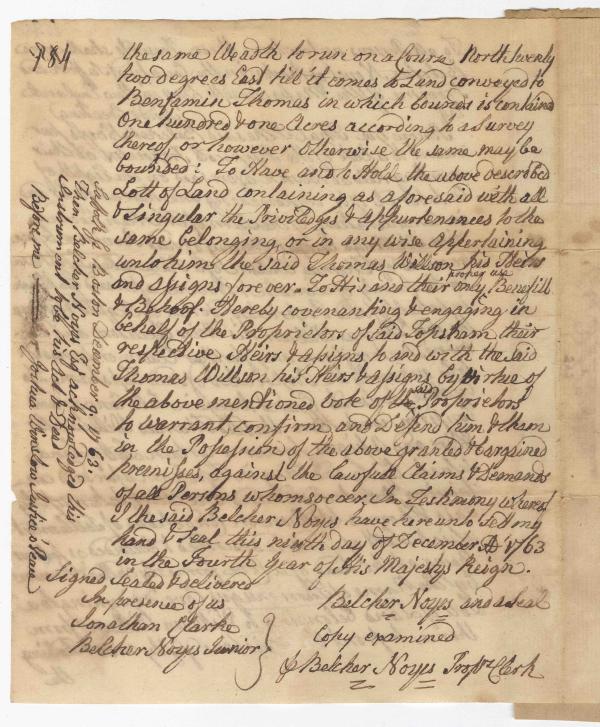 184
the same Weadth to run on a Course North Twenty
two degrees East till it comes to Land conveyed to
Benjamin Thomas in which bounds is contained
One hundred & one Acres according to a Survey
thereof, or however otherwise the same may be
bounded: To Have and to Hold the above described
Lott of Land containing as aforesaid with all
& Singular the Priviledges & appurtenances to the
same belonging, or in any wise appertaining
unto him the said Thomas Willson his Heirs
and assigns forever. To His and their only proper use Benefitt
& Behoof. Hereby covenanting & engaging in
behalf of the Proprietors of said Topsham their
respective Heirs & assigns to and with the said
Thomas Willson his Heirs & assigns by virtue of
the above mentioned vote of the said Proprietors
to warrant, confirm and Defend him & them
in the Possession of the above granted & bargained
premisses, against the Lawfull Claims & Demands
of all Persons whomsoever. In Testimony whereof
I the said Belcher Noyes have hereunto Sett my
hand & Seal this ninth day of December AD 1763
in the Fourth Year of His Majestys Reign.
Signed Sealed & delivered
In presence of us
Jonathan Clarke
Belcher Noyes Junior
Belcher Noyes and a Seal
Copy examined
Belcher Noyes Prop Clerk
Suffolk Ss Boston December 9. 1763.
Then Belcher Noyes Esq acknowledged this
Instrument to be his Act & Deed
Before me Joshua Winslow Justice o Peace